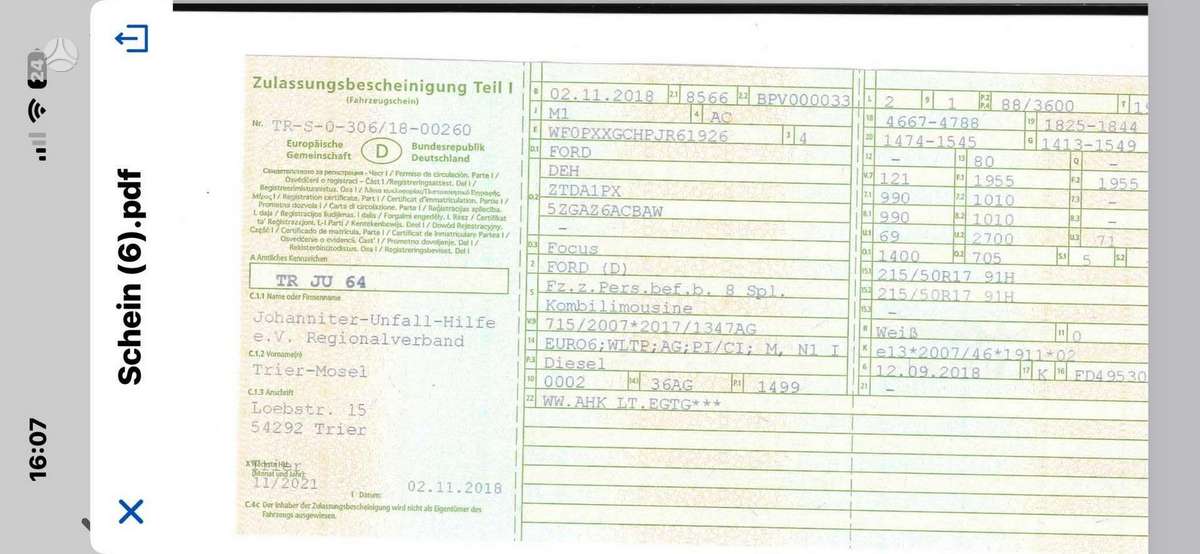 24
16:07
Schein (6).pdf
Zulassungsbescheinigung Teil I
(Fahrzeugschein)
Nr. TR-S-0-306/18-00260
Europäische Gemeinschaft
D
Bundesrepublik Deutschland
A Amtliches Kennzeichen
TR JU 64
C.1.1 Name oder Firmenname
Johanniter-Unfall-Hilfe
e.V. Regionalverband
C.1.2 Vorname(n)
Trier-Mosel
C.1.3 Anschrift
Loebstr. 15
54292 Trier
11/2021
I Datum: 02.11.2018
C.4c Der Inhaber der Zulassungsbescheinigung wird nicht als Eigentümer des
Fahrzeugs ausgewiesen.
B 02.11.2018 2.1 8566 2.2 BPV000033
J M1 4 AC
E WF0PXXGCHPJR61926 3 4
D.1 FORD
DEH
D.2 ZTDA1PX
5ZGAZ6ACBAW
–
D.3 Focus
2 FORD (D)
5 Fz.z.Pers.bef.b. 8 Spl.
Kombilimousine
V.9 715/2007*2017/1347AG
14 EURO6;WLTP;AG;PI/CI; M, N1 I
P.3 Diesel
10 0002 14.1 36AG P.1 1499
22 WW.AHK LT.EGTG***
L 2 9 1 P.2 P.4 88/3600 T
18 4667-4788 19 1825-1844
20 1474-1545 G 1413-1549
12 – 13 80 Q –
V.7 121 F.1 1955 F.2 1955
7.1 990 7.2 1010 7.3 –
8.1 990 8.2 1010 8.3 –
U.1 69 U.2 2700 U.3 71
O.1 1400 O.2 705 S.1 5 S.2
15.1 215/50R17 91H
15.2 215/50R17 91H
15.3 –
R Weiß 11 0
K e13*2007/46*1911*02
6 12.09.2018 17 K 16 FD49530
21 –